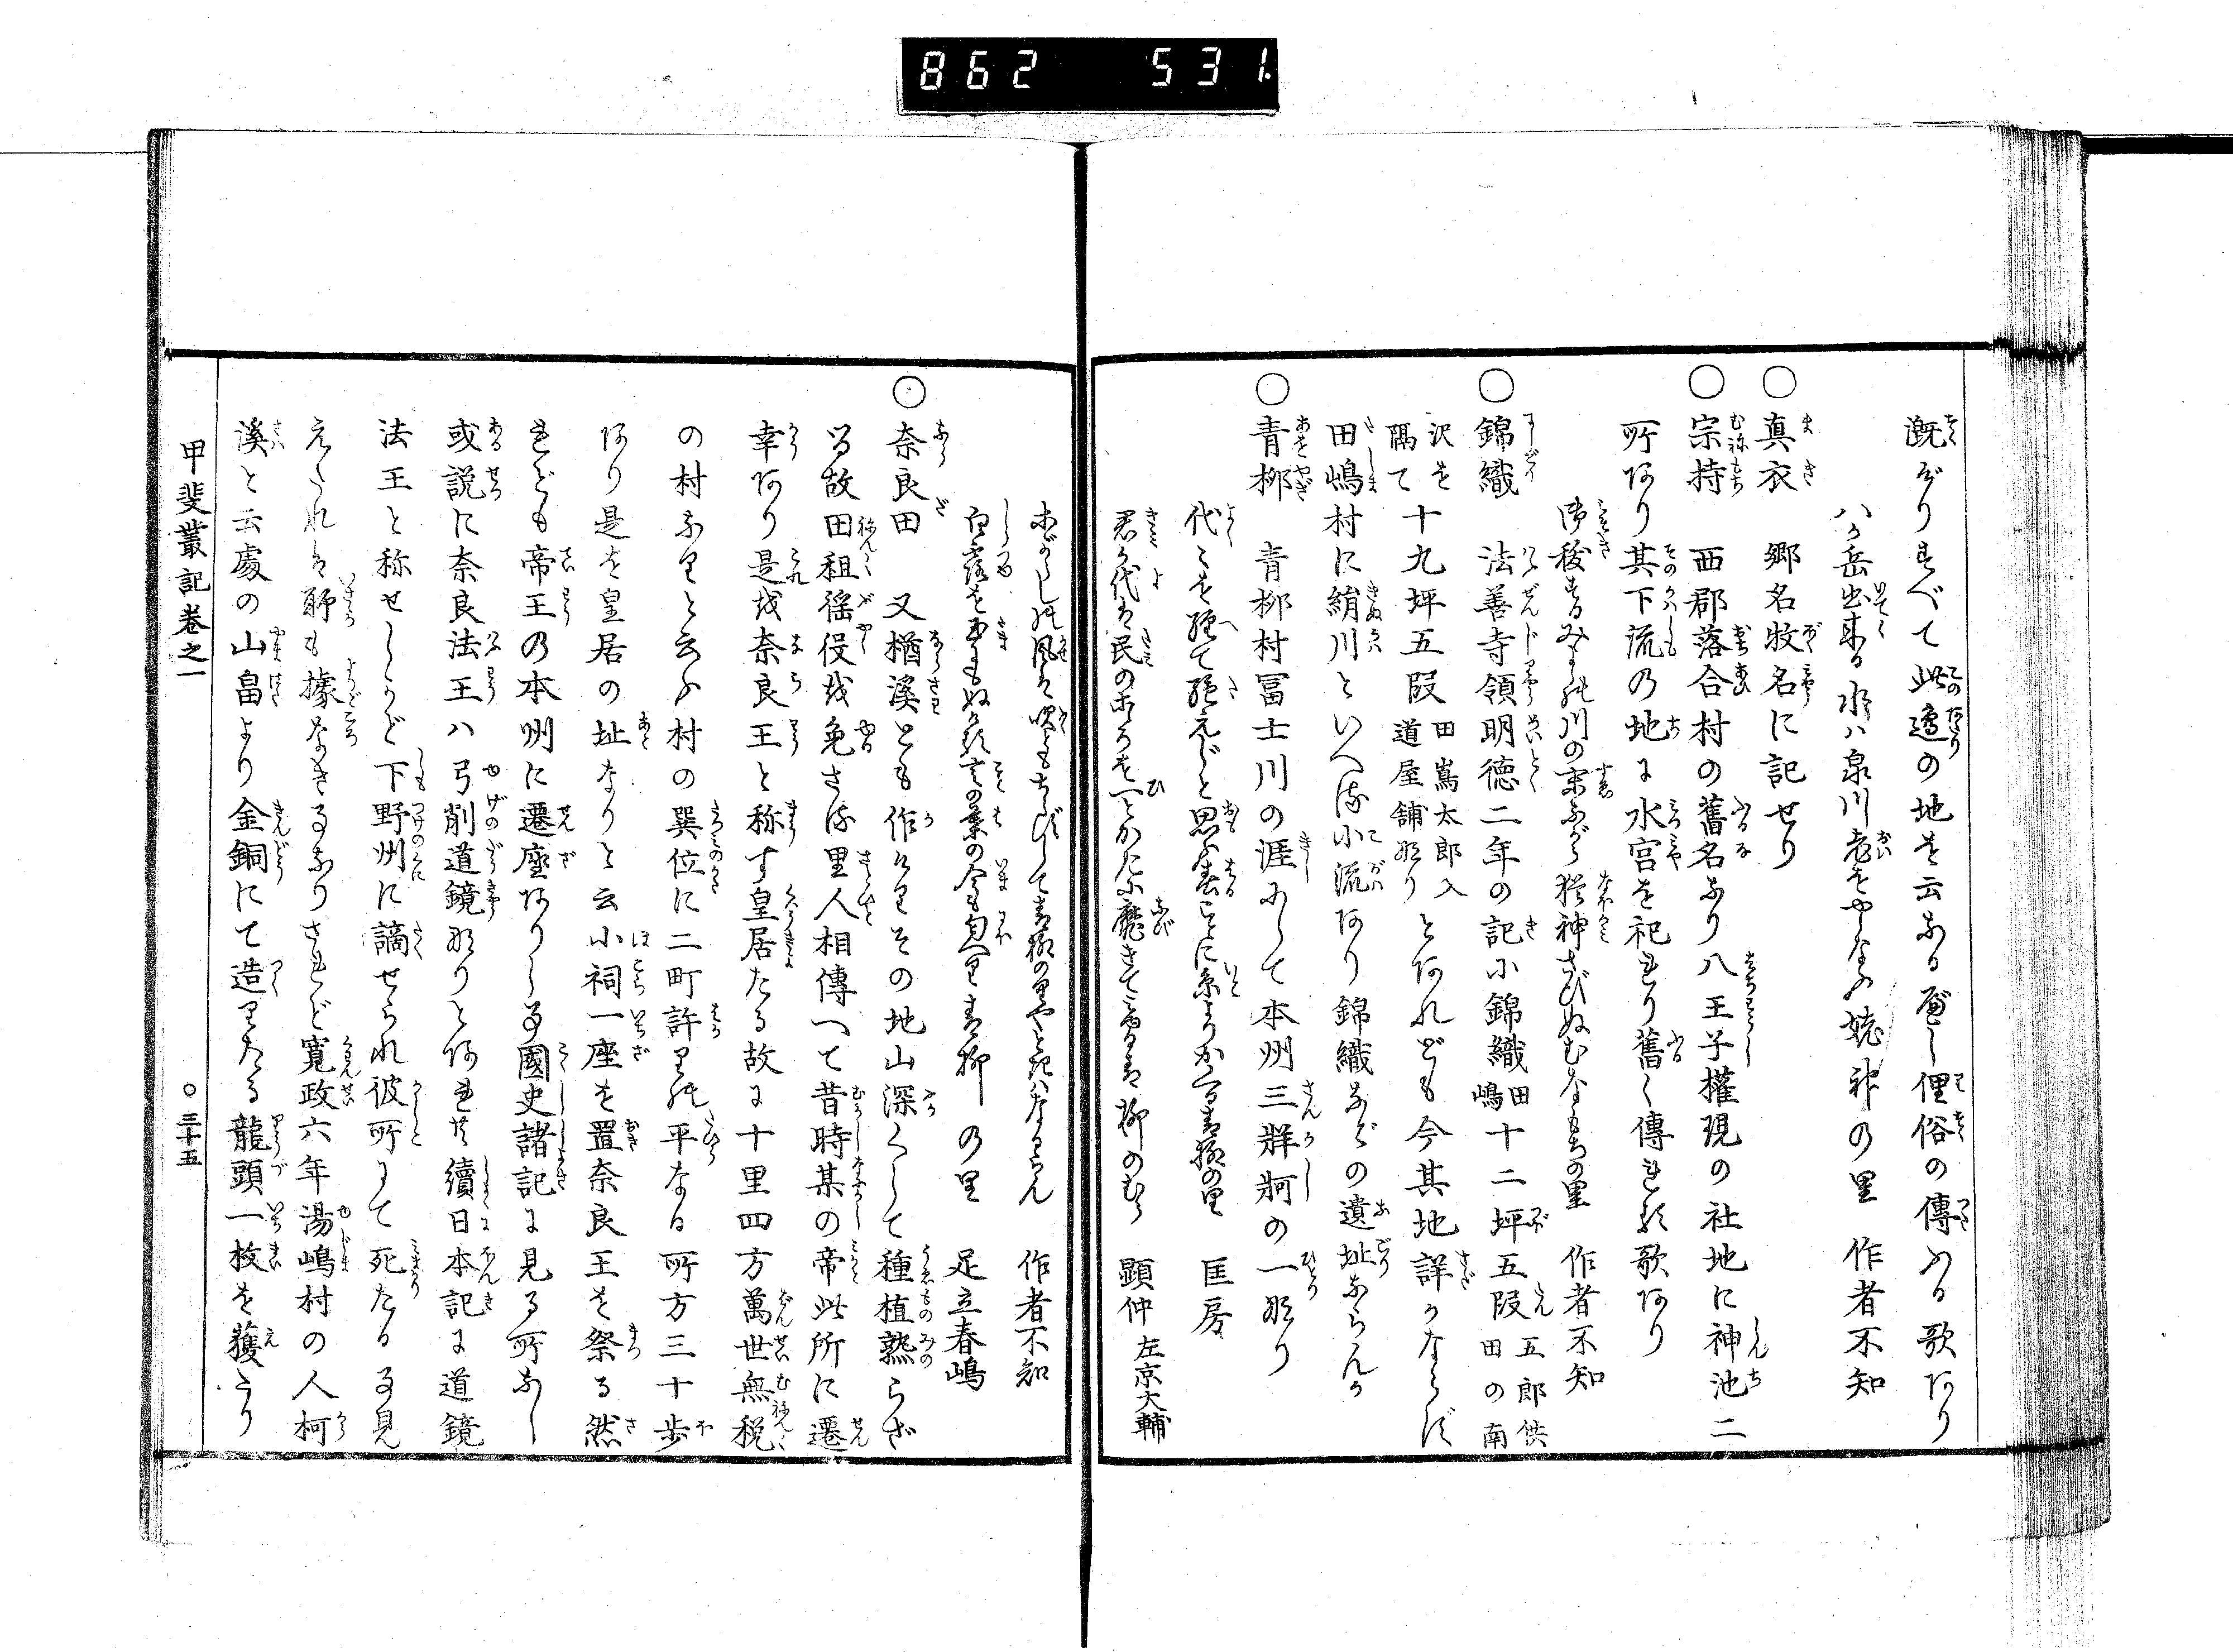 862 531
漑ぎりすべて此邉の地を云なるべし俚俗の傳ふる歌あり
八个岳出来る水ハ泉川老をやしなふ姥神の里 作者不知
○真衣 郷名牧名に記せり
○宗持 西郡落合村の舊名なり八王子權現の社地に神池二
所あり其下流の地に水宮を祀れり舊く傳ける歌あり
御祓するみよの川の末ながら猶神さびぬむなもちの里 作者不知
○錦織 法善寺領明徳二年の記に錦織田嶋十二坪五段五郎供田の南
沢を隔て十九坪五段田嶌太郎入道屋舗なりとあれども今其地詳かならず
田嶋村に絹川といへる小流あり錦織などの遺址ならんか
○青柳 青柳村冨士川の涯にして本州三牂牁の一なり
代々を經て絶えじと思ふ春ごとに糸よりかへる青柳の里 匡房
君が代は民のこゝろを一とかたに靡きて見る青柳のむら 顕仲左京大輔
木がらしの風は吹ともちらずして青柳の里やときハなるらん 作者不知
白露をもぬける言の葉の今も匂へり青柳の里 足立春嶋
○奈良田 又楢溪とも作けりその地山深くして種植熟らざ
る故田租徭役を免さる里人相傳へて昔時某の帝此所に遷
幸あり是を奈良王と称す皇居たる故に十里四方萬世無税
の村なりと云ふ村の巽位に二町許りの平なる所方三十歩
あり是を皇居の址なりと云小祠一座を置奈良王を祭る然
れども帝王の本州に遷座ありし事國史諸記に見る所なし
或説に奈良法王ハ弓削道鏡なりとあれど續日本記に道鏡
法王と称せしかど下野州に謫せられ彼所にて死たる事見
えたれは聊も據なき事なりされど寛政六年湯嶋村の人柯
溪と云處の山畠より金銅にて造りたる龍頭一枚を獲たり
甲斐叢記巻之一 ○三十五